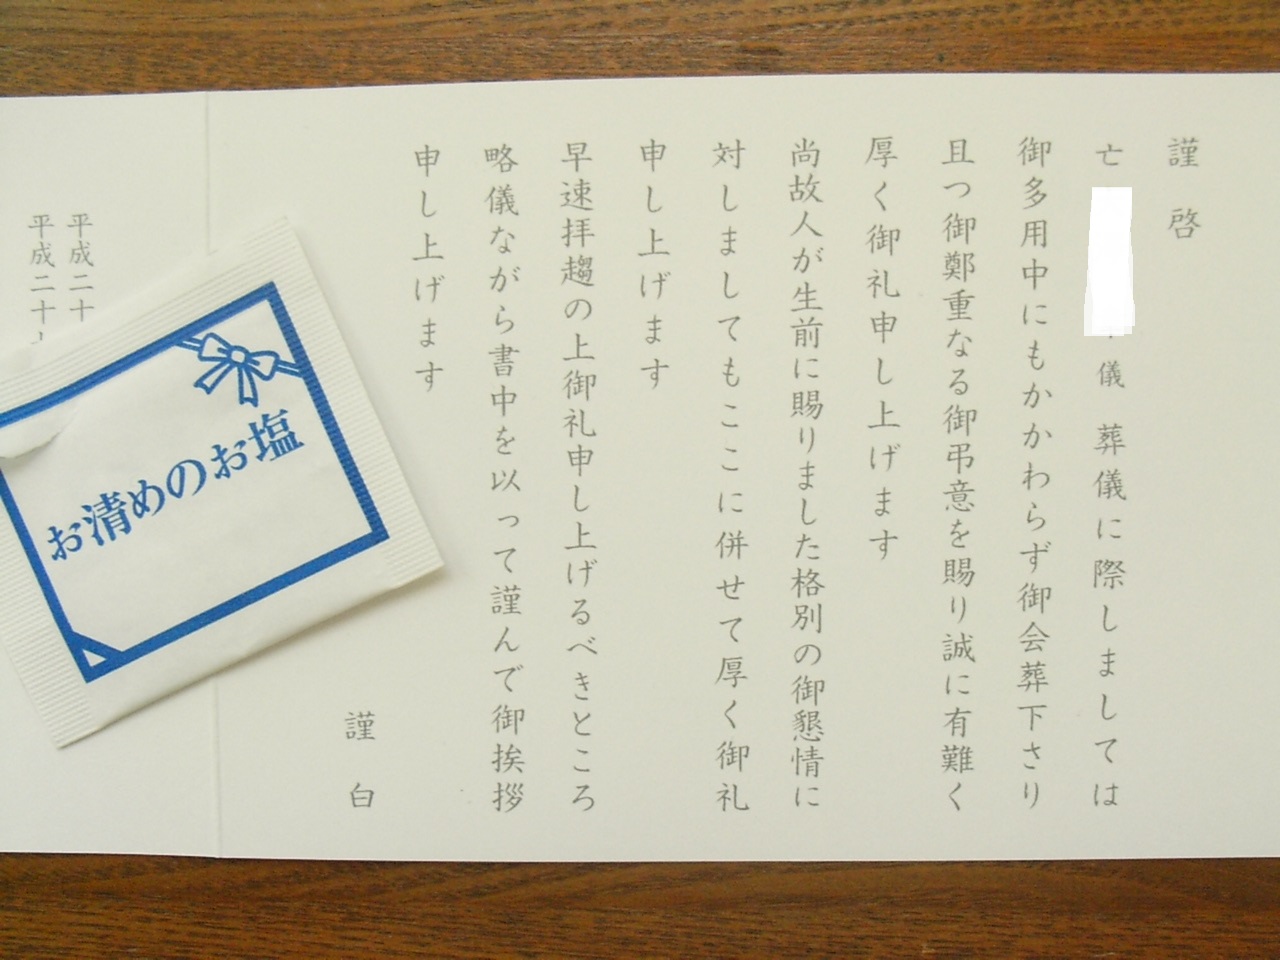 謹啓
亡 儀 葬儀に際しましては
御多用中にもかかわらず御会葬下さり
且つ御鄭重なる御弔意を賜り誠に有難く
厚く御礼申し上げます
尚故人が生前に賜りました格別の御懇情に
対しましてもここに併せて厚く御礼
申し上げます
早速拝趨の上御礼申し上げるべきところ
略儀ながら書中を以って謹んで御挨拶
申し上げます
謹白
平成二十
平成二十
お清めのお塩